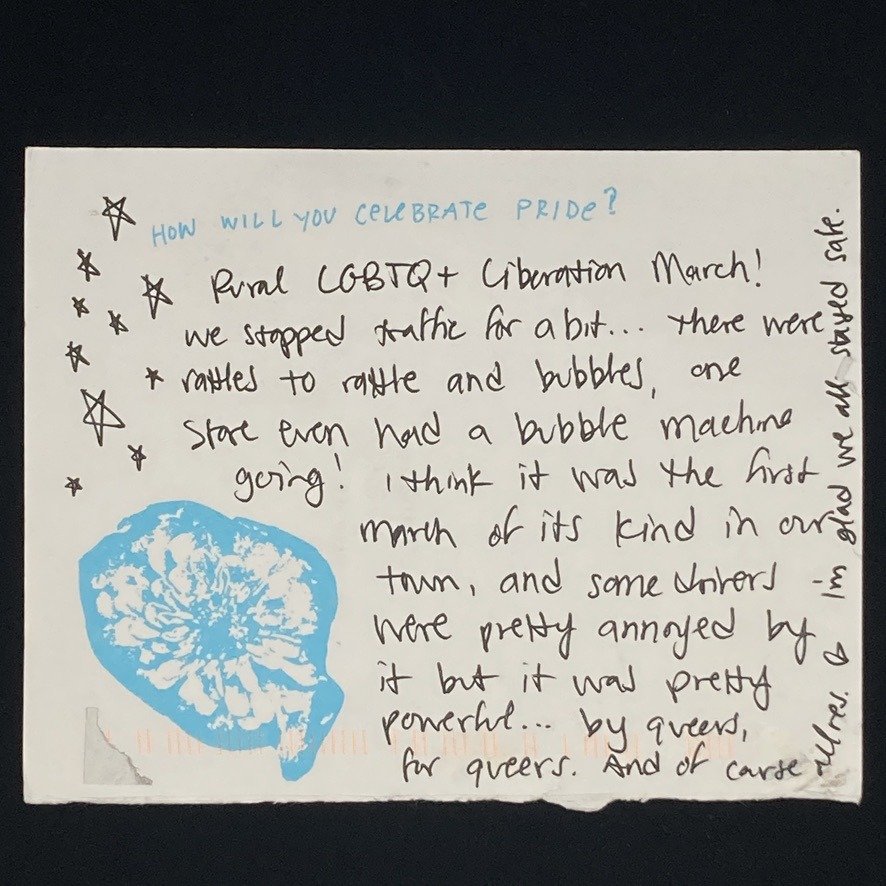 HOW WILL YOU CELEBRATE PRIDE?
Rural LGBTQ+ Liberation March!
we stopped traffic for a bit... there were
rattles to rattle and bubbles, one
store even had a bubble machine
going! I think it was the first
march of its kind in our
town, and some drivers
were pretty annoyed by
it but it was pretty
powerful... by queers,
for queers. And of course
allies. - I'm glad we all stayed safe.